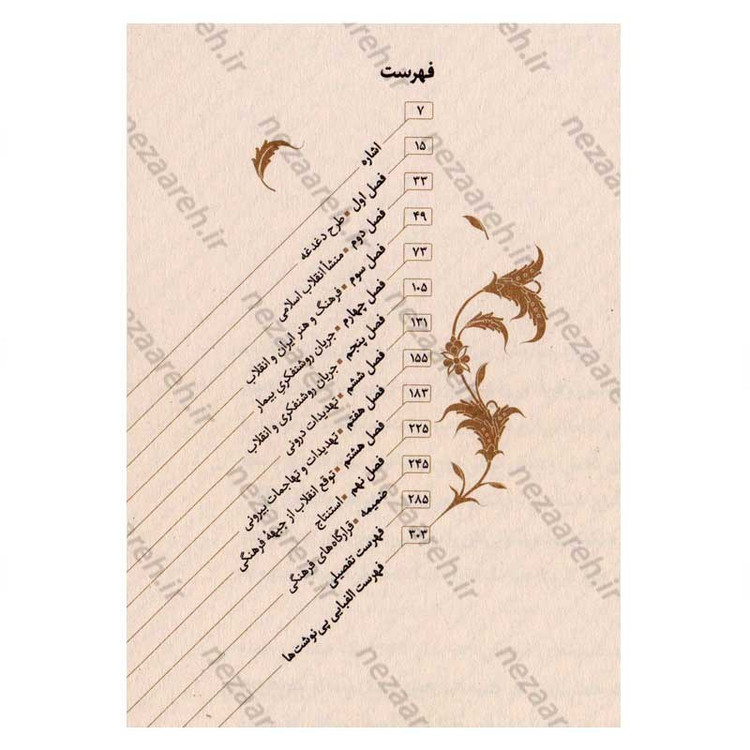 فهرست
اشاره ۷
فصل اول ▪ طرح دغدغه ۱۵
فصل دوم ▪ منشأ انقلاب اسلامی ۳۳
فصل سوم ▪ فرهنگ و هنر ایران و انقلاب ۴۹
فصل چهارم ▪ جریان روشنفکری بیمار ۷۳
فصل پنجم ▪ جریان روشنفکری و انقلاب ۱۰۵
فصل ششم ▪ تهدیدات درونی ۱۳۱
فصل هفتم ▪ تهدیدات و تهاجمات بیرونی ۱۵۵
فصل هشتم ▪ توقع انقلاب از جبههٔ فرهنگی ۱۸۳
فصل نهم ▪ استنتاج ۲۲۵
ضمیمه ▪ قرارگاه‌های فرهنگی ۲۴۵
فهرست تفصیلی ۲۸۵
فهرست الفبایی پی‌نوشت‌ها ۳۰۳
nezaareh.ir